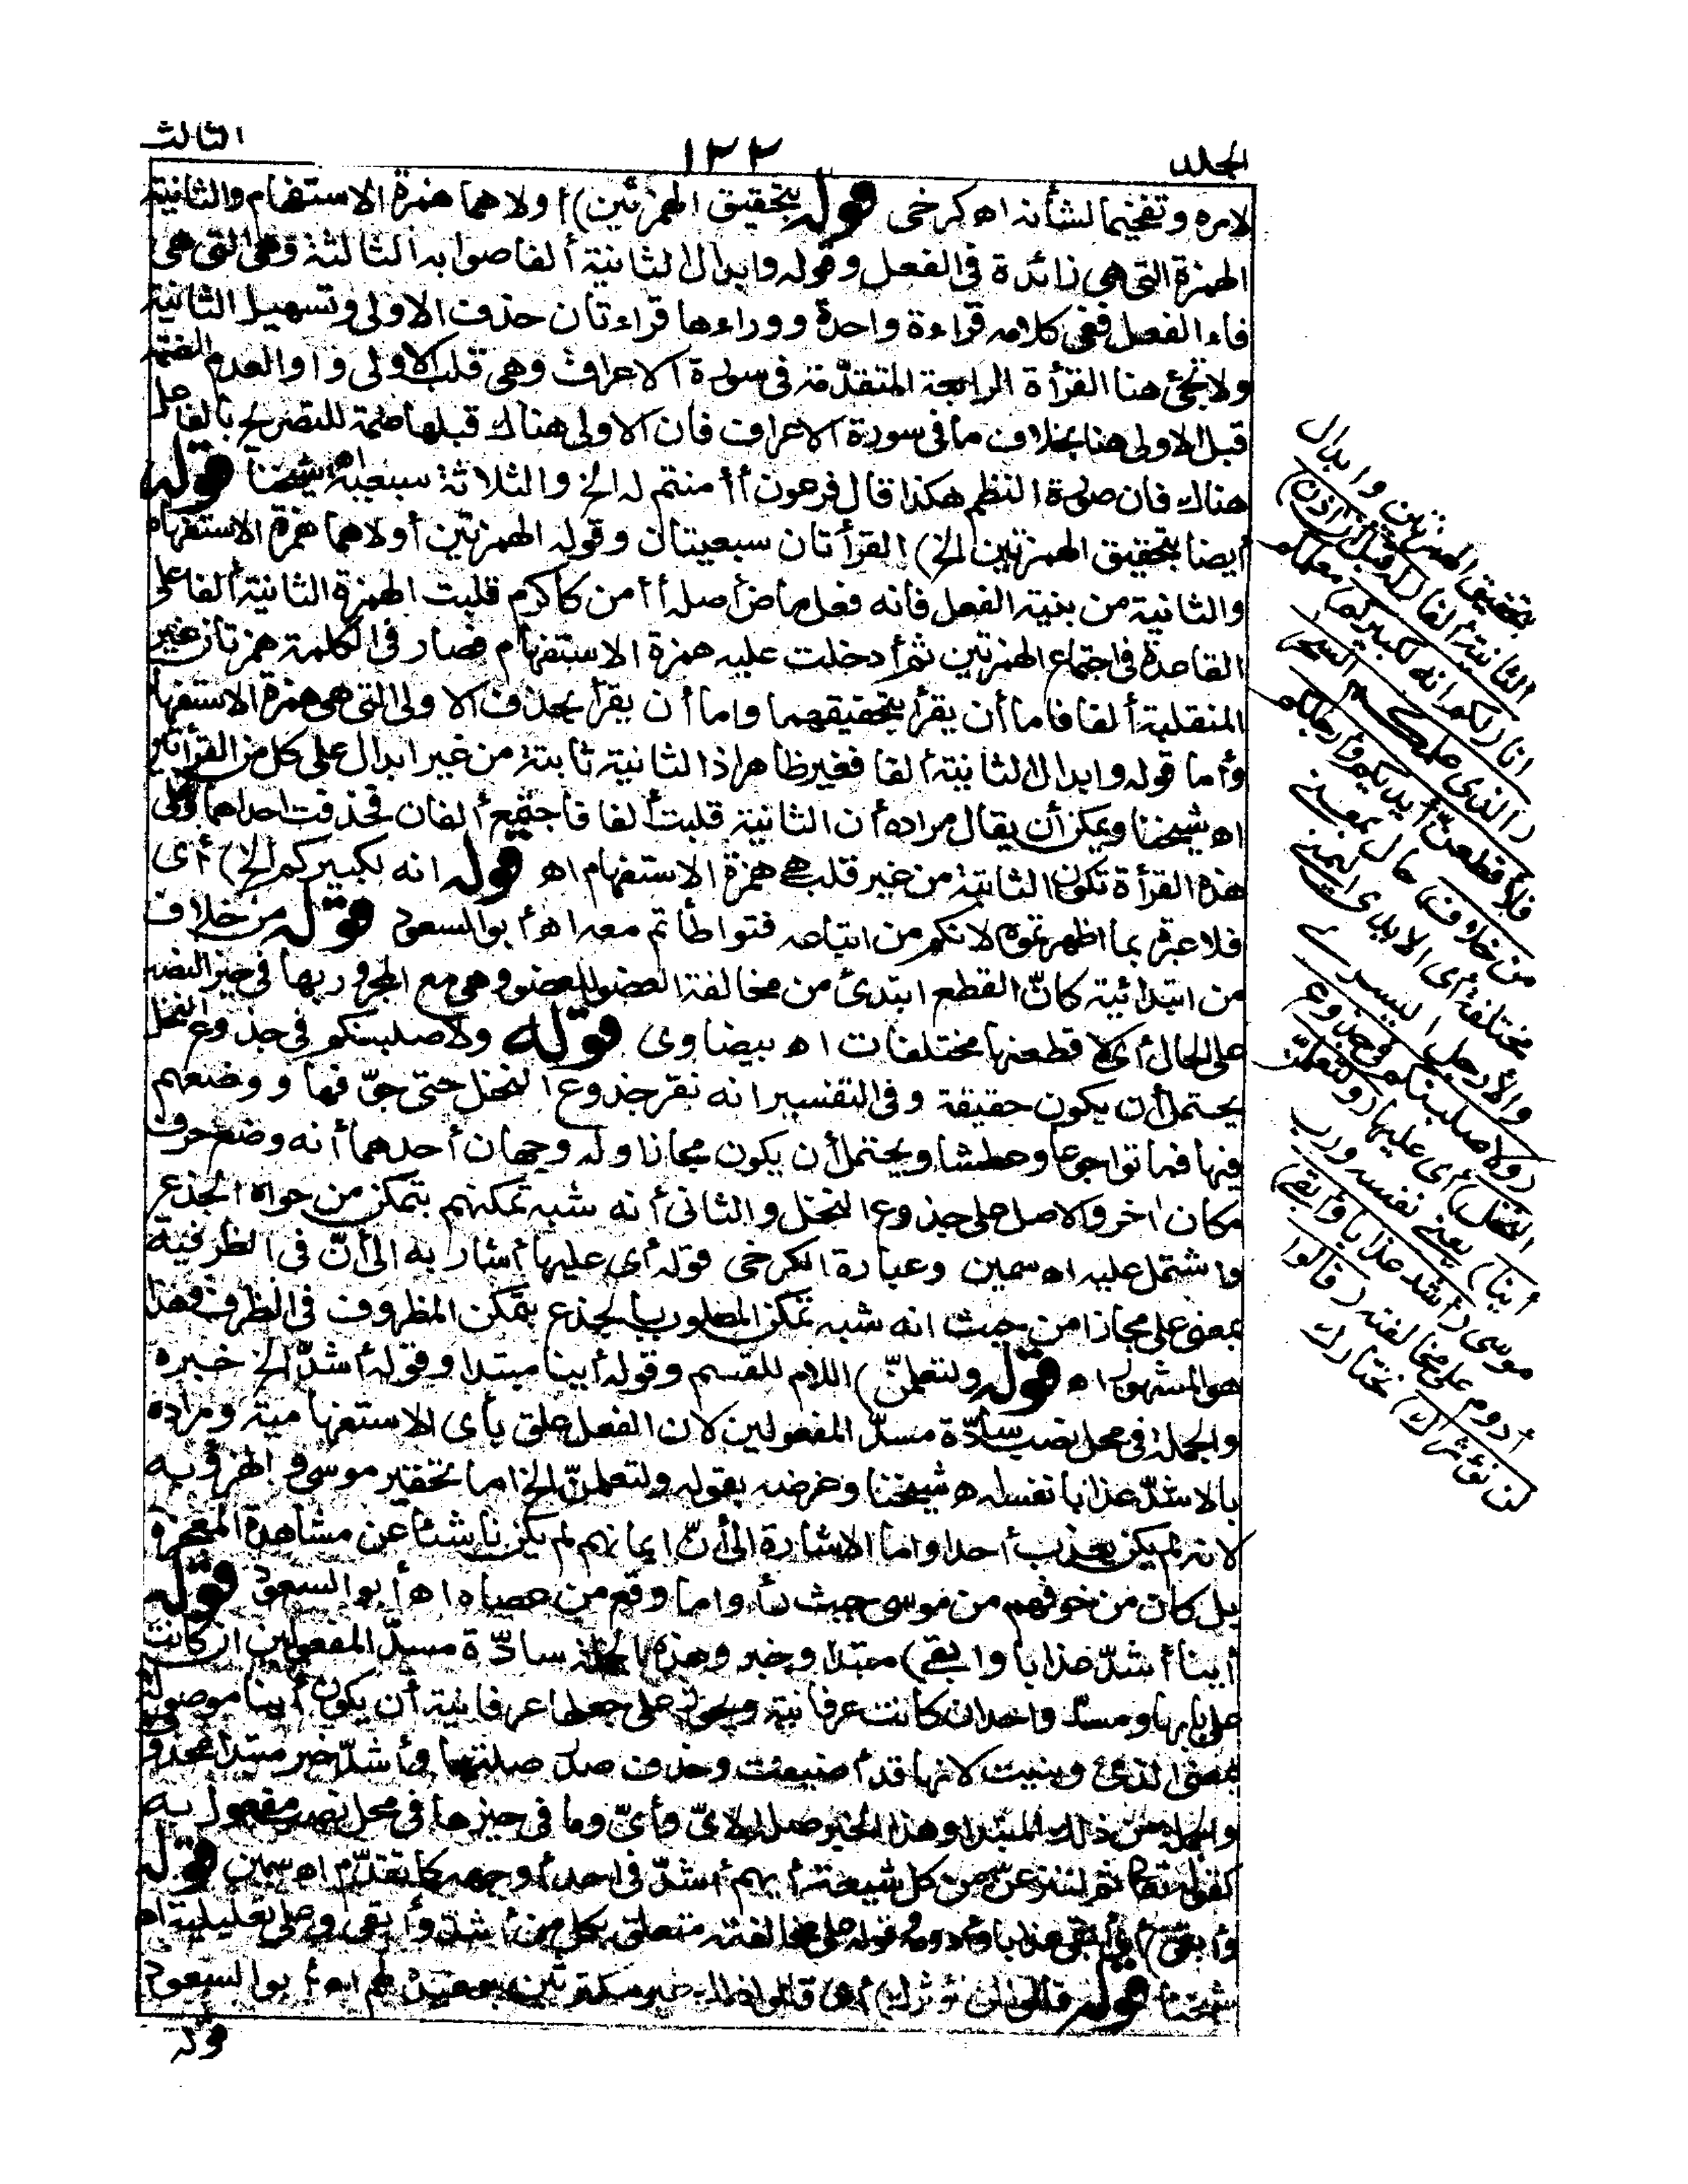 المجلد
١٢٢
الثالث
لامره وتفخيما لشأنه اه كرخى قوله بتحقيق الهمزتين) أولاهما همزة الاستفهام والثانية
الهمزة التى هى زائدة فى الفعل وقوله وابدال الثانية ألفا صوابه الثالثة وهى التى هى
فاء الفعل ففى كلامه قراءة واحدة ووراءها قراءتان حذف الاولى وتسهيل الثانية
ولا تجئ هنا القرأة الرابعة المتقدّمة فى سورة الاعراف وهى قلب الاولى واوا لعدم الضمة
قبل الاولى هنا بخلاف ما فى سورة الاعراف فان الاولى هناك قبلها ضمة للتصريح بالفاعل
هناك فان صورة النظم هكذا قال فرعون أآمنتم له الخ والثلاثة سبعية اه شيخنا قوله
أيضا بتحقيق الهمزتين الخ) القرأتان سبعيتان وقوله الهمزتين أولاهما همزة الاستفهام
والثانية من بنية الفعل فأنه فعل ماض أصله أأمن كأكرم قلبت الهمزة الثانية ألفا على
القاعدة فى اجتماع الهمزتين ثم أدخلت عليه همزة الاستفهام فصار فى الكلمة همزتان غير
المنقلبة ألفا فاما أن يقرأ بتحقيقهما واما أن يقرأ بحذف الاولى التى هى همزة الاستفهام
وأما قوله وابدال الثانية ألفا فغير ظاهر اذ الثانية ثابتة من غير ابدال على كل من القرأتين
اه شيخنا ويمكن أن يقال مراده أن الثانية قلبت ألفا فاجتمع ألفان فحذفت احداهما وعلى
هذه القرأة تكون الثابتة من غير قلب هى همزة الاستفهام اه قوله انه لكبيركم الخ) أى
فلا عبرة بما اظهرتموه لانكم من اتباعه فتواطأتم معه اه أبو السعود قوله من خلاف
من ابتدائية كانّ القطع ابتدئ من مخالفة العضو للعضو وهى مع المجرور بها فى حيز النصب
على الحال أى لاقطعنها مختلفات اه بيضاوى قوله ولاصلبنكم فى جذوع النخل
يحتمل أن يكون حقيقة وفى التفسير انه نقر جذوع النخل حتى جوّفها ووضعهم
فيها فماتوا جوعا وعطشا ويحتمل أن يكون مجازا وله وجهان أحدهما أنه وضع حرف
مكان اخر والاصل على جذوع النخل والثانى أنه شبه تمكنهم بتمكن من حواه الجذع
واشتمل عليه اه سمين وعبارة الكرخى قوله أى عليها أشار به الى أنّ فى الظرفية
بمعنى على مجازا من حيث انه شبه تمكن المصلوب بالجذع بتمكن المظروف فى الظرف وهذا
هو المشهور اه قوله ولتعلمنّ) اللام للقسم وقوله أينا مبتدا وقوله أشدّ الخ خبره
والجملة فى محل نصب سادّة مسدّ المفعولين لان الفعل علق بأى الاستفهامية ومراده
بالاشدّ عذابا نفسه اه شيخنا وغرضه بقوله ولتعلمنّ الخ اما تحقير موسى والهزؤ به
لانه لم يكن يعذب أحدا واما الاشارة الى أنّ ايمانهم لم يكن ناشئا عن مشاهدة المعجزة
بل كان من خوفهم من موسى حيث رأوا ما وقع من عصاه اه أبو السعود قوله
أينا أشدّ عذابا وابقى) مبتدا وخبر وهذه الجملة سادّة مسدّ المفعولين ان كانت
على بابها ومسدّ واحد ان كانت عرفانية ويجوز على جعلها عرفانية أن يكون أينا موصولة
بمعنى الذى وبنيت لانها قد أضيفت وحذف صدر صلتها وأشدّ خبر مبتدا محذوف
والجملة من ذلك المبتدا وهذا الخبر صلة لأىّ وأىّ وما فى حيزها فى محل نصب مفعول به
كقوله تعالى ثم لننزعنّ من كل شيعة أيهم أشدّ فى احد أوجهه كما تقدّم اه سمين قوله
وأبقى) أى أبقى عذابا وأدومه وقوله على مخالفته متعلق بكل من أشد وأبقى وعلى تعليلية اه
شيخنا قوله قالوا لن نؤثرك) أى قالوا ذلك غير مكترثين بوعيده لهم اه أبو السعود
قوله
بتحقيق الهمزتين وابدال
الثانية ألفا (له قبل أن اذن)
انا (لكم انه لكبيركم) معلمكم
(الذى علمكم السحر
فلأقطعنّ أيديكم وأرجلكم
من خلاف) حال بمعنى
مختلفة أى الايدى اليمنى
والأرجل اليسرى
(ولأصلبنكم فى جذوع
النخل) أى عليها (ولتعلمنّ
أينا) يعنى نفسه ورب
موسى (أشد عذابا وأبقى)
أدوم على مخالفته (قالوا
لن نؤثرك) نختارك